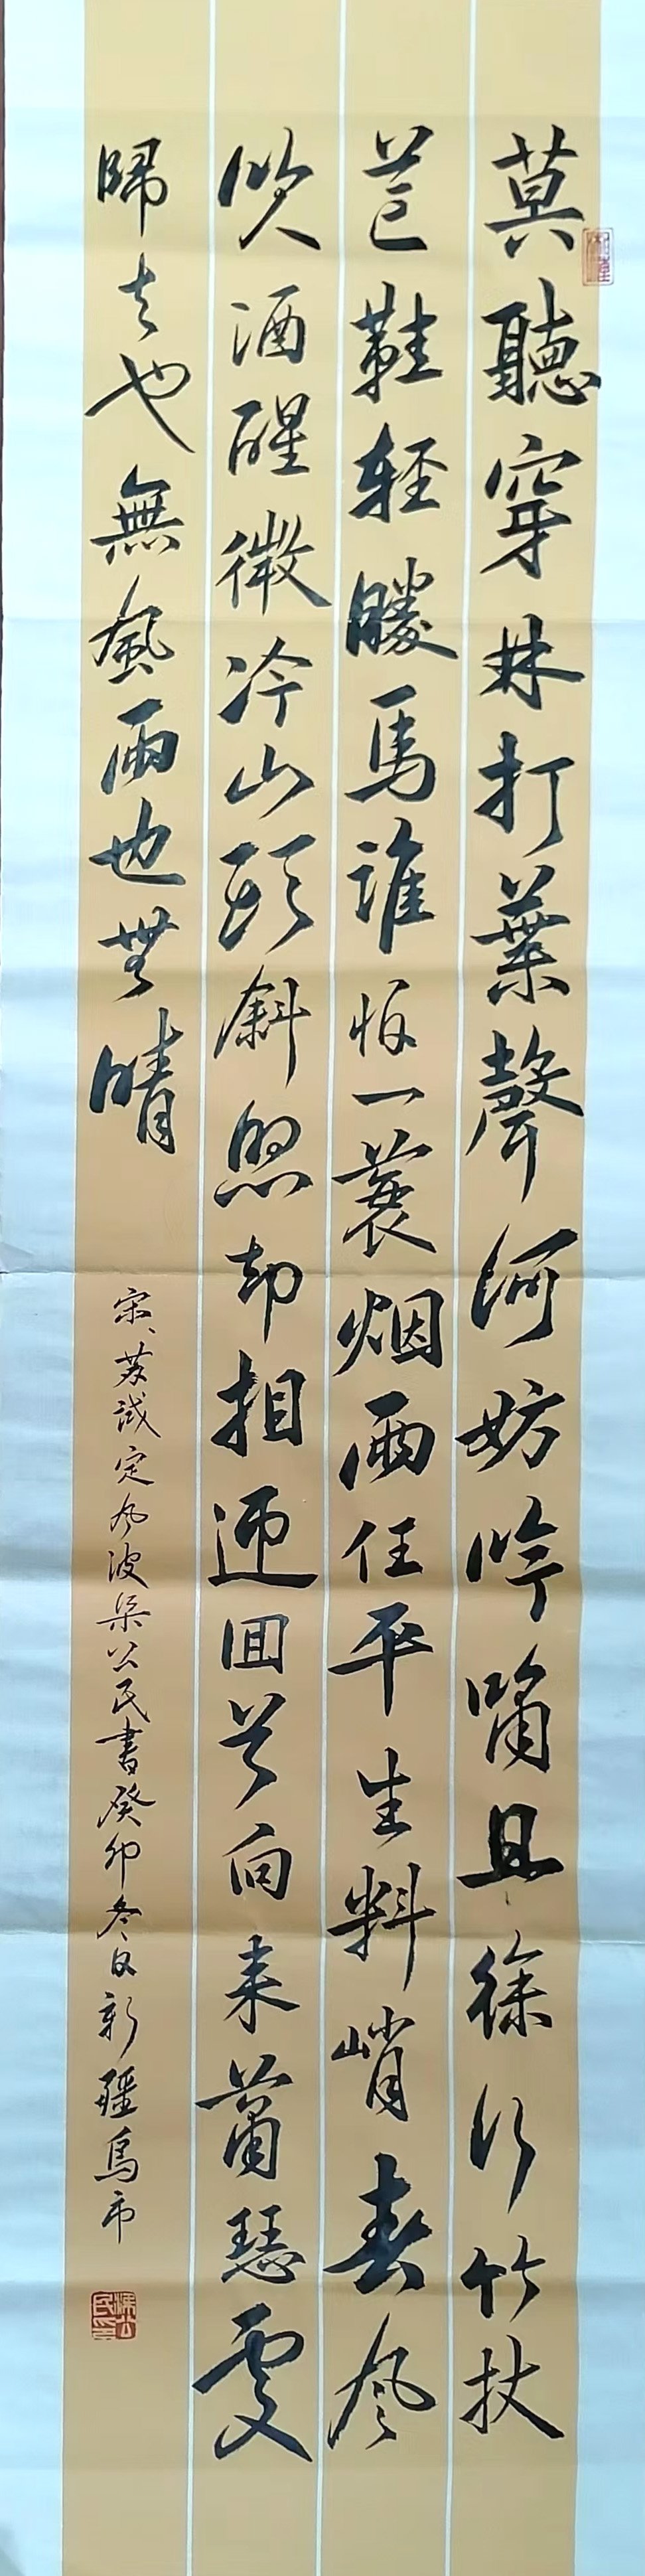 莫聽穿林打葉聲何妨吟嘯且徐行竹杖
芒鞋轻勝馬誰怕一蓑烟雨任平生料峭春风
吹酒醒微冷山頭斜照却相迎回首向来蕭瑟處
歸去也無風雨也無晴
宋、苏軾定风波梁公民書癸卯冬日新疆烏市